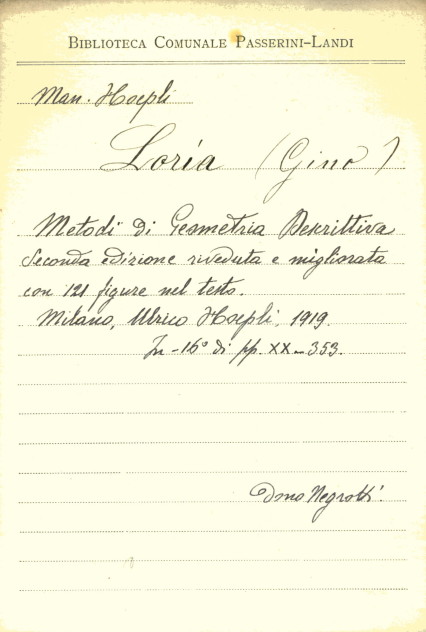 BIBLIOTECA COMUNALE PASSERINI-LANDI
Man. Hoepli
Loria (Gino)
Metodi di Geometria Descrittiva
Seconda edizione riveduta e migliorata
con 121 figure nel testo.
Milano, Ulrico Hoepli, 1919.
In-16° di pp. XX-353.
Dono Negrotti.